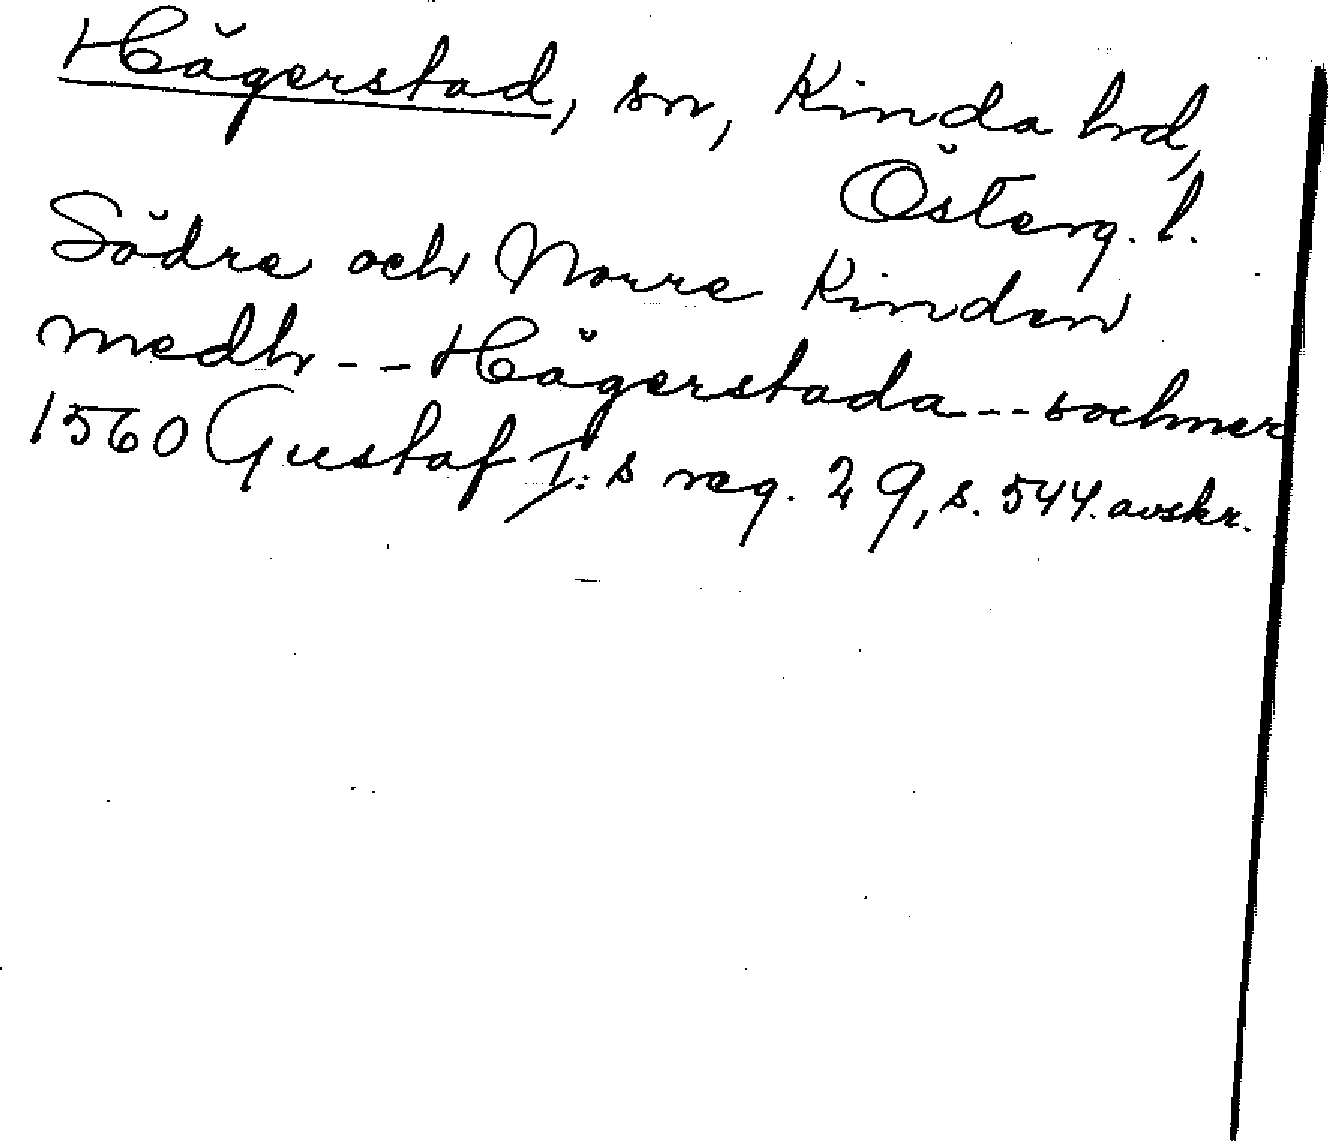 Hägerstad, sn, Kinda hd,
Österg. l.
Södre och Norre Kinden
medh -- Hägerstada -- sochner
1560 Gustaf I:s reg. 29, s. 544. avskr.